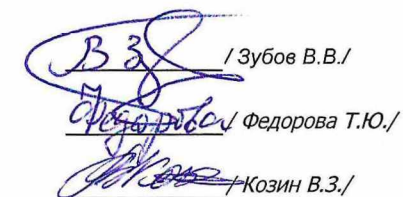 / Зубов В.В./
/ Федорова Т.Ю./
/Козин В.З./